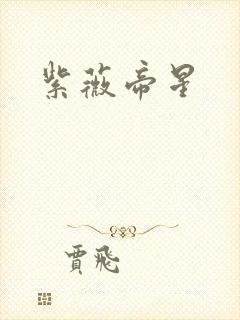 紫薇帝星
賈飛